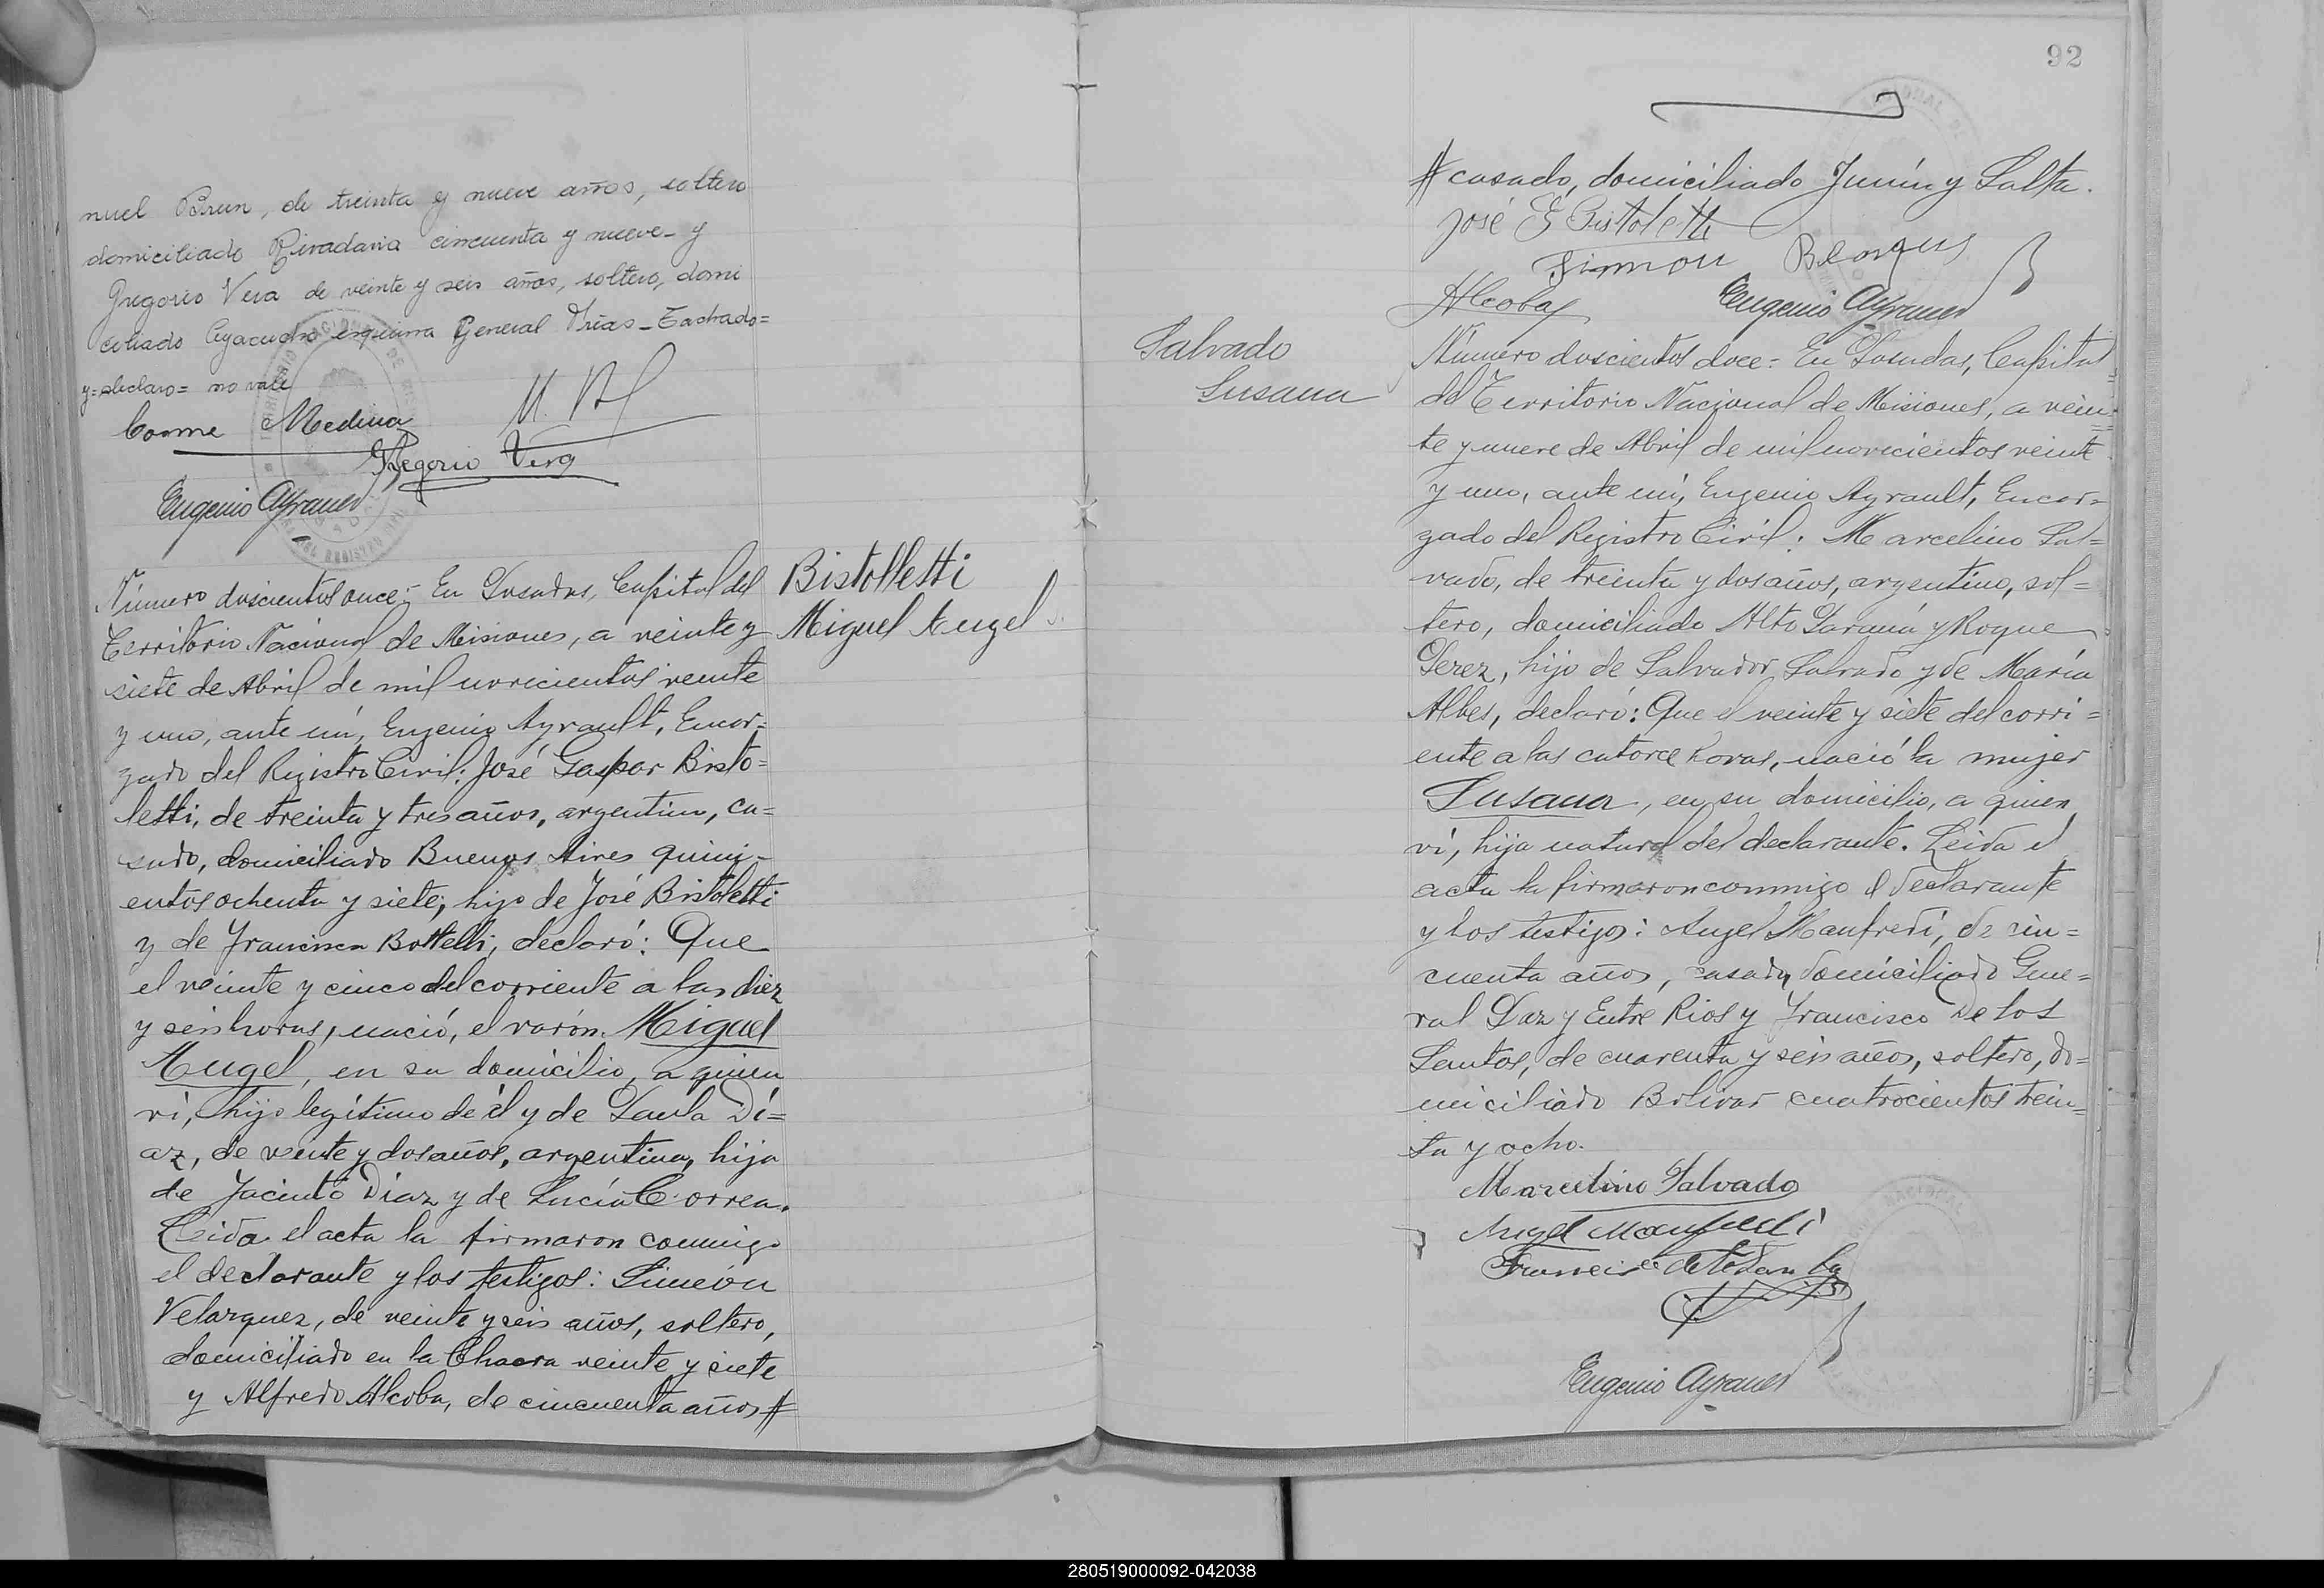 nuel Brun, de treinta y nueve años, soltero
domiciliado Rivadavia cincuenta y nueve - y
Gregorio Vera de veinte y seis años, soltero, domi
ciliado Ayacucho esquina General Frias - Tachado=
y=declaro= no vale
Cosme Medina
Gregorio Vera
Eugenio Ayrault
Bistolletti
Miguel Angel
Número doscientos once:- En Posadas, Capital del
Territorio Nacional de Misiones, a veinte y
siete de Abril de mil novecientos veinte
y uno, ante mí, Eugenio Ayrault, Encar=
gado del Registro Civil: José Gaspar Bisto=
letti, de treinta y tres años, argentino, ca=
sado, domiciliado Buenos Aires quini-
entos ochenta y siete, hijo de José Bistoletti
y de Francisca Bottelli, declaró: Que
el veinte y cinco del corriente a las diez
y seis horas, nació, el varón Miguel
Angel, en su domicilio, a quien
ví, hijo legítimo de él y de Paula Dí=
az, de veinte y dos años, argentina, hija
de Jacinto Díaz y de Lucía Correa.
Leida el acta la firmaron conmigo
el declarante y los testigos: Simeón
Velazquez, de veinte y seis años, soltero,
domiciliado en la Chacra veinte y siete
y Alfredo Alcoba, de cincuenta años #
92
# casado, domiciliado Junín y Salta.
José G Bistoletti
Alcoba
Eugenio Ayrault
Salvado
Susana
Número doscientos doce:- En Posadas, Capital
del Territorio Nacional de Misiones, a vein=
te y nueve de Abril de mil novecientos veinte
y uno, ante mí, Eugenio Ayrault, Encar=
gado del Registro Civil: Marcelino Sal=
vado, de treinta y dos años, argentino, sol=
tero, domiciliado Alto Paraná y Roque
Perez, hijo de Salvador Salvado y de María
Albes, declaró: Que el veinte y siete del corri=
ente a las catorce horas, nació la mujer
Susana, en su domicilio, a quien
ví, hija natural del declarante. Leida el
acta la firmaron conmigo el declarante
y los testigos: Angel Manfredi, de cin=
cuenta años, casado, domiciliado Gene=
ral Paz y Entre Rios y Francisco De los
Santos, de cuarenta y seis años, soltero, do=
miciliado Bolivar cuatrocientos trein=
ta y ocho.
Marcelino Salvado
Angel Manfredi
Eugenio Ayrault
280519000092-042038